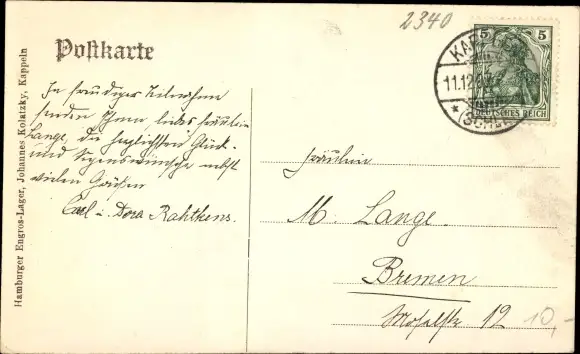 2340
Postkarte
5 5
KAPPELN
11.12.
(SCHLE
DEUTSCHES REICH
In freudiger Teilnahme
senden Ihnen liebes Fräulein
Lange, die herzlichsten Glück-
und Segenswünsche nebst
vielen Grüßen
Carl u. Dora Rahtkens.
Fräulein
M. Lange.
Bremen
12
10,-
Hamburger Engros-Lager, Johannes Kolatzky, Kappeln